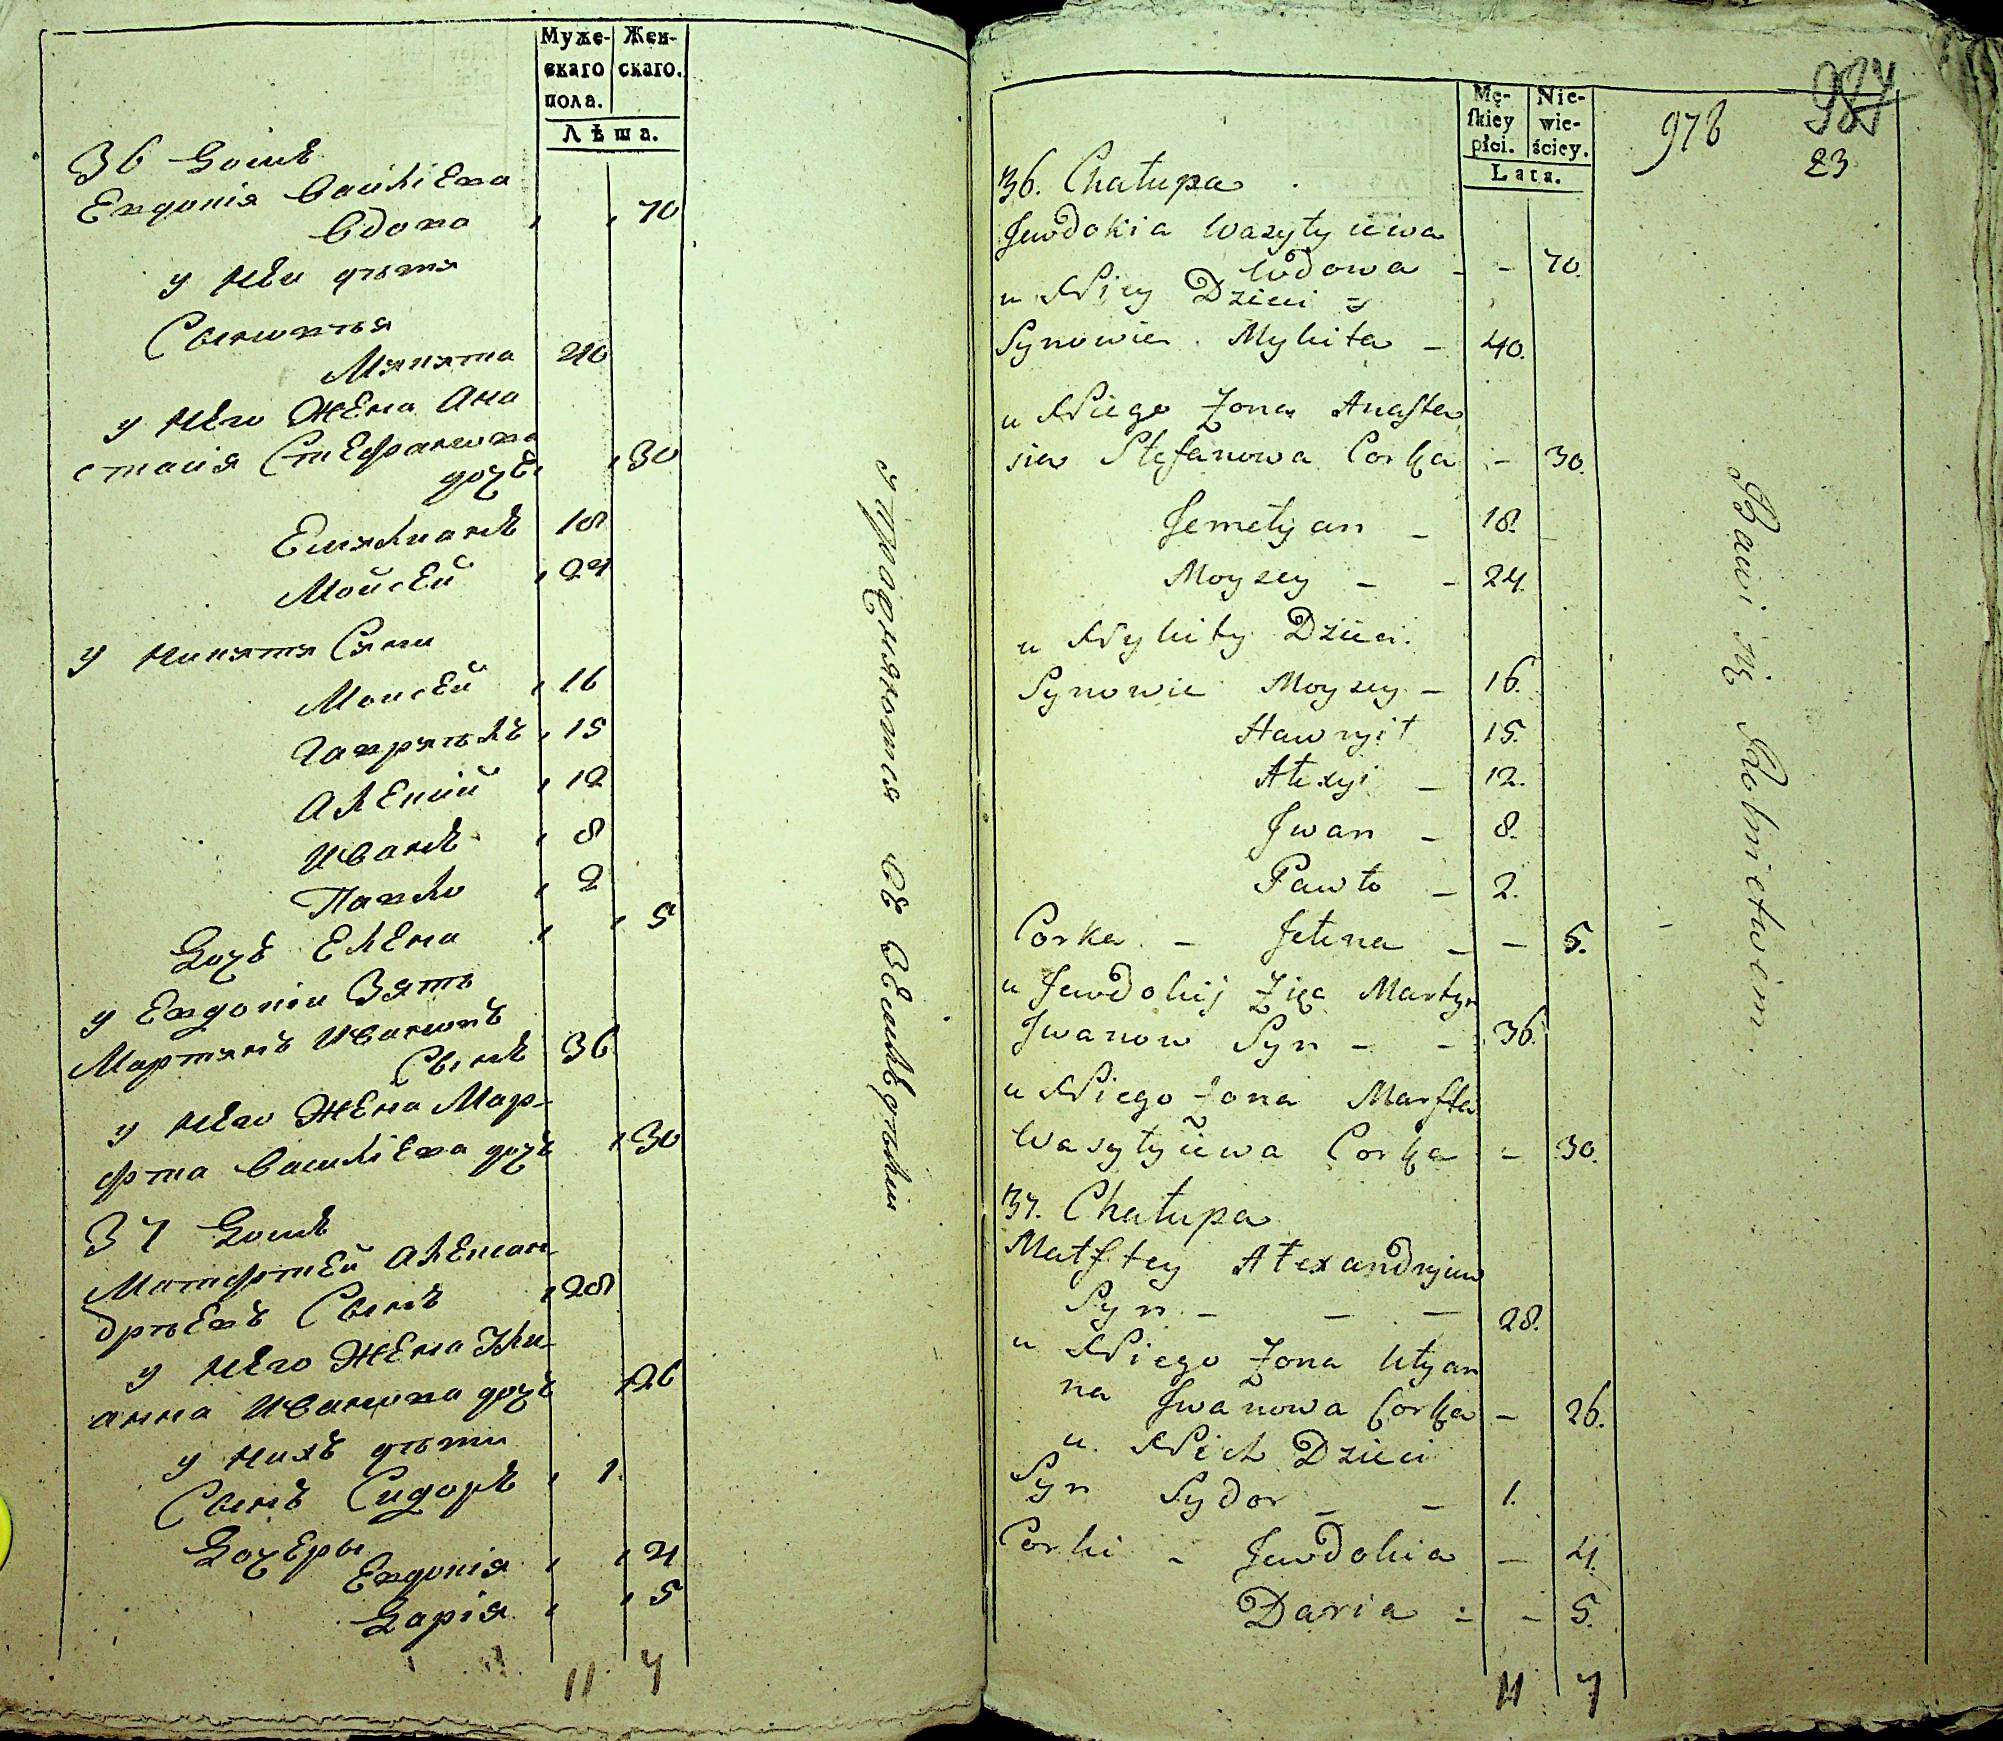 Муже-
скаго
пола.
Жен-
скаго.
Лѣта.
36 Домъ
Евдокія Василіева
вдова 70
у неи дѣти
Сыновья
Микита 40
у него жена Ана
стасія Стефанова
дочь 30
Емилианъ 18
Мойсей 24
у Микити Сини
Мойсей 16
Гавриилъ 15
Алексій 12
Иванъ 8
Павло 2
Дочь Елена 5
у Евдокіи Зять
Мартинъ Ивановъ
Сынъ 36
у него жена Мар-
фта Василіева дочь 30
37 Домъ
Матфтей Алексан-
дріевъ Сынъ 28
у него жена Ули-
анна Иванова дочь 26
у нихъ дѣти
Сынъ Сидоръ 1
Дочеры
Евдокія 4
Дарія 5
11 7
упражняются въ земледѣліи
978
984
23
Mę-
skiey
płci.
Nie-
wie-
ściey.
Lata.
36. Chałupa
Jewdokia Wasylyiewa
Wdowa - - 70.
u Niey Dzieci
Synowie. Mykita - 40.
u Niego Żona Anasta
sia Stefanowa Corka - 30.
Jemelyan - 18.
Moyzey - - 24.
u Mykity Dzieci.
Synowie Moyzey - 16.
Hawryił 15.
Alexyi - 12.
Jwan - 8.
Pawło - 2.
Corka - Jelena - - 5.
u Jewdokij Zięć Martyn
Jwanow Syn - - 36.
u Niego Żona Marfta
Wasylyiewa Corka - 30.
37. Chałupa
Matftey Alexandryiew
Syn - - - 28.
u Niego Żona Ulyan
na Jwanowa Corka - 26.
u Nich Dzieci
Syn Sydor - - 1.
Corki - Jewdokia - 4.
Daria - - 5.
11 7
Bawi się Rolnictwem.